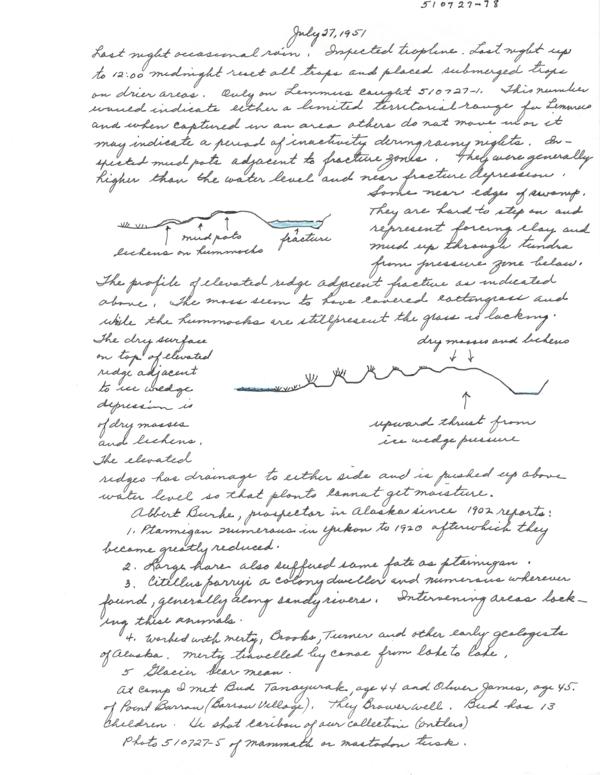 510727-78
July 27, 1951
Last night occasional rain. Inspected trapline. Last night up
to 12:00 midnight reset all traps and placed submerged traps
on drier areas. Only on Lemmus caught 510727-1. This number
would indicate either a limited territorial range for Lemmus
and when captured in an area others do not move in or it
may indicate a period of inactivity during rainy nights. In-
spected mud pots adjacent to fracture zones. They were generally
higher than the water level and near fracture depression.
Some near edges of swamp.
They are hard to step on and
represent forcing clay and
mud up through tundra
from pressure zone below.
mud pots
fracture
lichens on hummocks
The profile of elevated ridge adjacent fracture as indicated
above. The moss seem to have covered cottongrass and
while the hummocks are still present the grass is lacking.
The dry surface
on top of elevated
ridge adjacent
to ice wedge
depression is
of dry mosses
and lichens.
The elevated
dry mosses and lichens
upward thrust from
ice wedge pressure
ridges has drainage to either side and is pushed up above
water level so that plants cannot get moisture.
Albert Burke, prospector in Alaska since 1902 reports:
1. Ptarmigan numerous in Yukon to 1920 afterwhich they
became greatly reduced.
2. Large hare also suffured same fate as ptarmigan.
3. Citellus parryi a colony dweller and numerous wherever
found, generally along sandy rivers. Intervening areas lack-
ing these animals.
4. Worked with Merty, Brooks, Turner and other early geologists
of Alaska. Merty travelled by canoe from lake to lake.
5 Glacier bear mean.
At camp I met Bud Tanayurak, age 44 and Oliver James, age 45.
of Point Barrow (Barrow Village). They Brower well. Bud has 13
children. He shot caribou of our collection (antlers)
Photo 510727-5 of mammath or mastodon tusk.